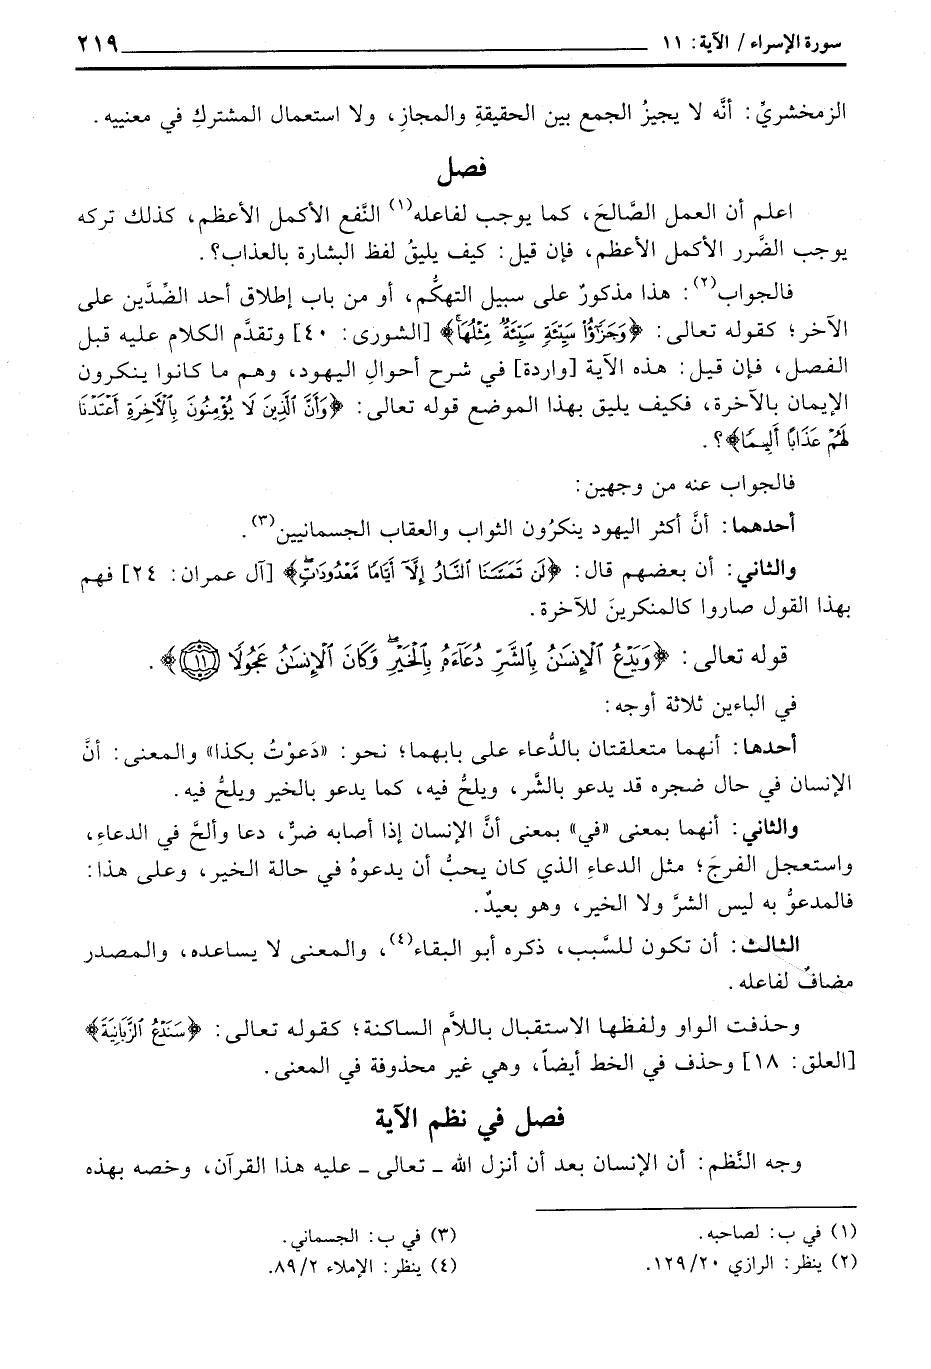 سورة الإسراء / الآية: ١١ ٢١٩
الزمخشريِّ: أنَّه لا يجيزُ الجمع بين الحقيقةِ والمجازِ، ولا استعمال المشتركِ في معنييه.
فصل
اعلم أن العمل الصَّالحَ، كما يوجب لفاعله(١) النَّفع الأكمل الأعظم، كذلك تركه
يوجب الضَّرر الأكمل الأعظم، فإن قيل: كيف يليقُ لفظ البشارة بالعذاب؟.
فالجواب(٢): هذا مذكورٌ على سبيل التهكُّم، أو من باب إطلاق أحد الضِّدَّين على
الآخر؛ كقوله تعالى: ﴿وَجَزَٰٓؤُاْ سَيِّئَةٖ سَيِّئَةٞ مِّثۡلُهَاۖ﴾ [الشورى: ٤٠] وتقدَّم الكلام عليه قبل
الفصل، فإن قيل: هذه الآية [واردة] في شرح أحوالِ اليهود، وهم ما كانوا ينكرون
الإيمان بالآخرة، فكيف يليق بهذا الموضع قوله تعالى: ﴿وَأَنَّ ٱلَّذِينَ لَا يُؤۡمِنُونَ بِٱلۡأٓخِرَةِ أَعۡتَدۡنَا
لَهُمۡ عَذَابًا أَلِيمٗا﴾؟.
فالجواب عنه من وجهين:
أحدهما: أنَّ أكثر اليهود ينكرُون الثواب والعقاب الجسمانيين(٣).
والثاني: أن بعضهم قال: ﴿لَن تَمَسَّنَا ٱلنَّارُ إِلَّآ أَيَّامٗا مَّعۡدُودَٰتٖۖ﴾ [آل عمران: ٢٤] فهم
بهذا القول صاروا كالمنكرينَ للآخرة.
قوله تعالى: ﴿وَيَدۡعُ ٱلۡإِنسَٰنُ بِٱلشَّرِّ دُعَآءَهُۥ بِٱلۡخَيۡرِۖ وَكَانَ ٱلۡإِنسَٰنُ عَجُولٗا ١١﴾.
في الباءين ثلاثة أوجه:
أحدها: أنهما متعلقتان بالدُّعاء على بابهما؛ نحو: «دَعوْتُ بكذا» والمعنى: أنَّ
الإنسان في حال ضجره قد يدعو بالشَّر، ويلحُّ فيه، كما يدعو بالخير ويلحُّ فيه.
والثاني: أنهما بمعنى «في» بمعنى أنَّ الإنسان إذا أصابه ضرٌّ، دعا وألحَّ في الدعاءِ،
واستعجل الفرجَ؛ مثل الدعاءِ الذي كان يحبُّ أن يدعوهُ في حالة الخير، وعلى هذا:
فالمدعوُّ به ليس الشرَّ ولا الخير، وهو بعيدٌ.
الثالث: أن تكون للسَّبب، ذكره أبو البقاء(٤)، والمعنى لا يساعده، والمصدر
مضافٌ لفاعله.
وحذفت الواو ولفظها الاستقبال باللاَّم الساكنة؛ كقوله تعالى: ﴿سَنَدۡعُ ٱلزَّبَانِيَةَ﴾
[العلق: ١٨] وحذف في الخط أيضاً، وهي غير محذوفة في المعنى.
فصل في نظم الآية
وجه النَّظم: أن الإنسان بعد أن أنزل الله ـ تعالى ـ عليه هذا القرآن، وخصه بهذه
(١) في ب: لصاحبه.
(٢) ينظر: الرازي ٢٠/١٢٩.
(٣) في ب: الجسماني.
(٤) ينظر: الإملاء ٢/٨٩.